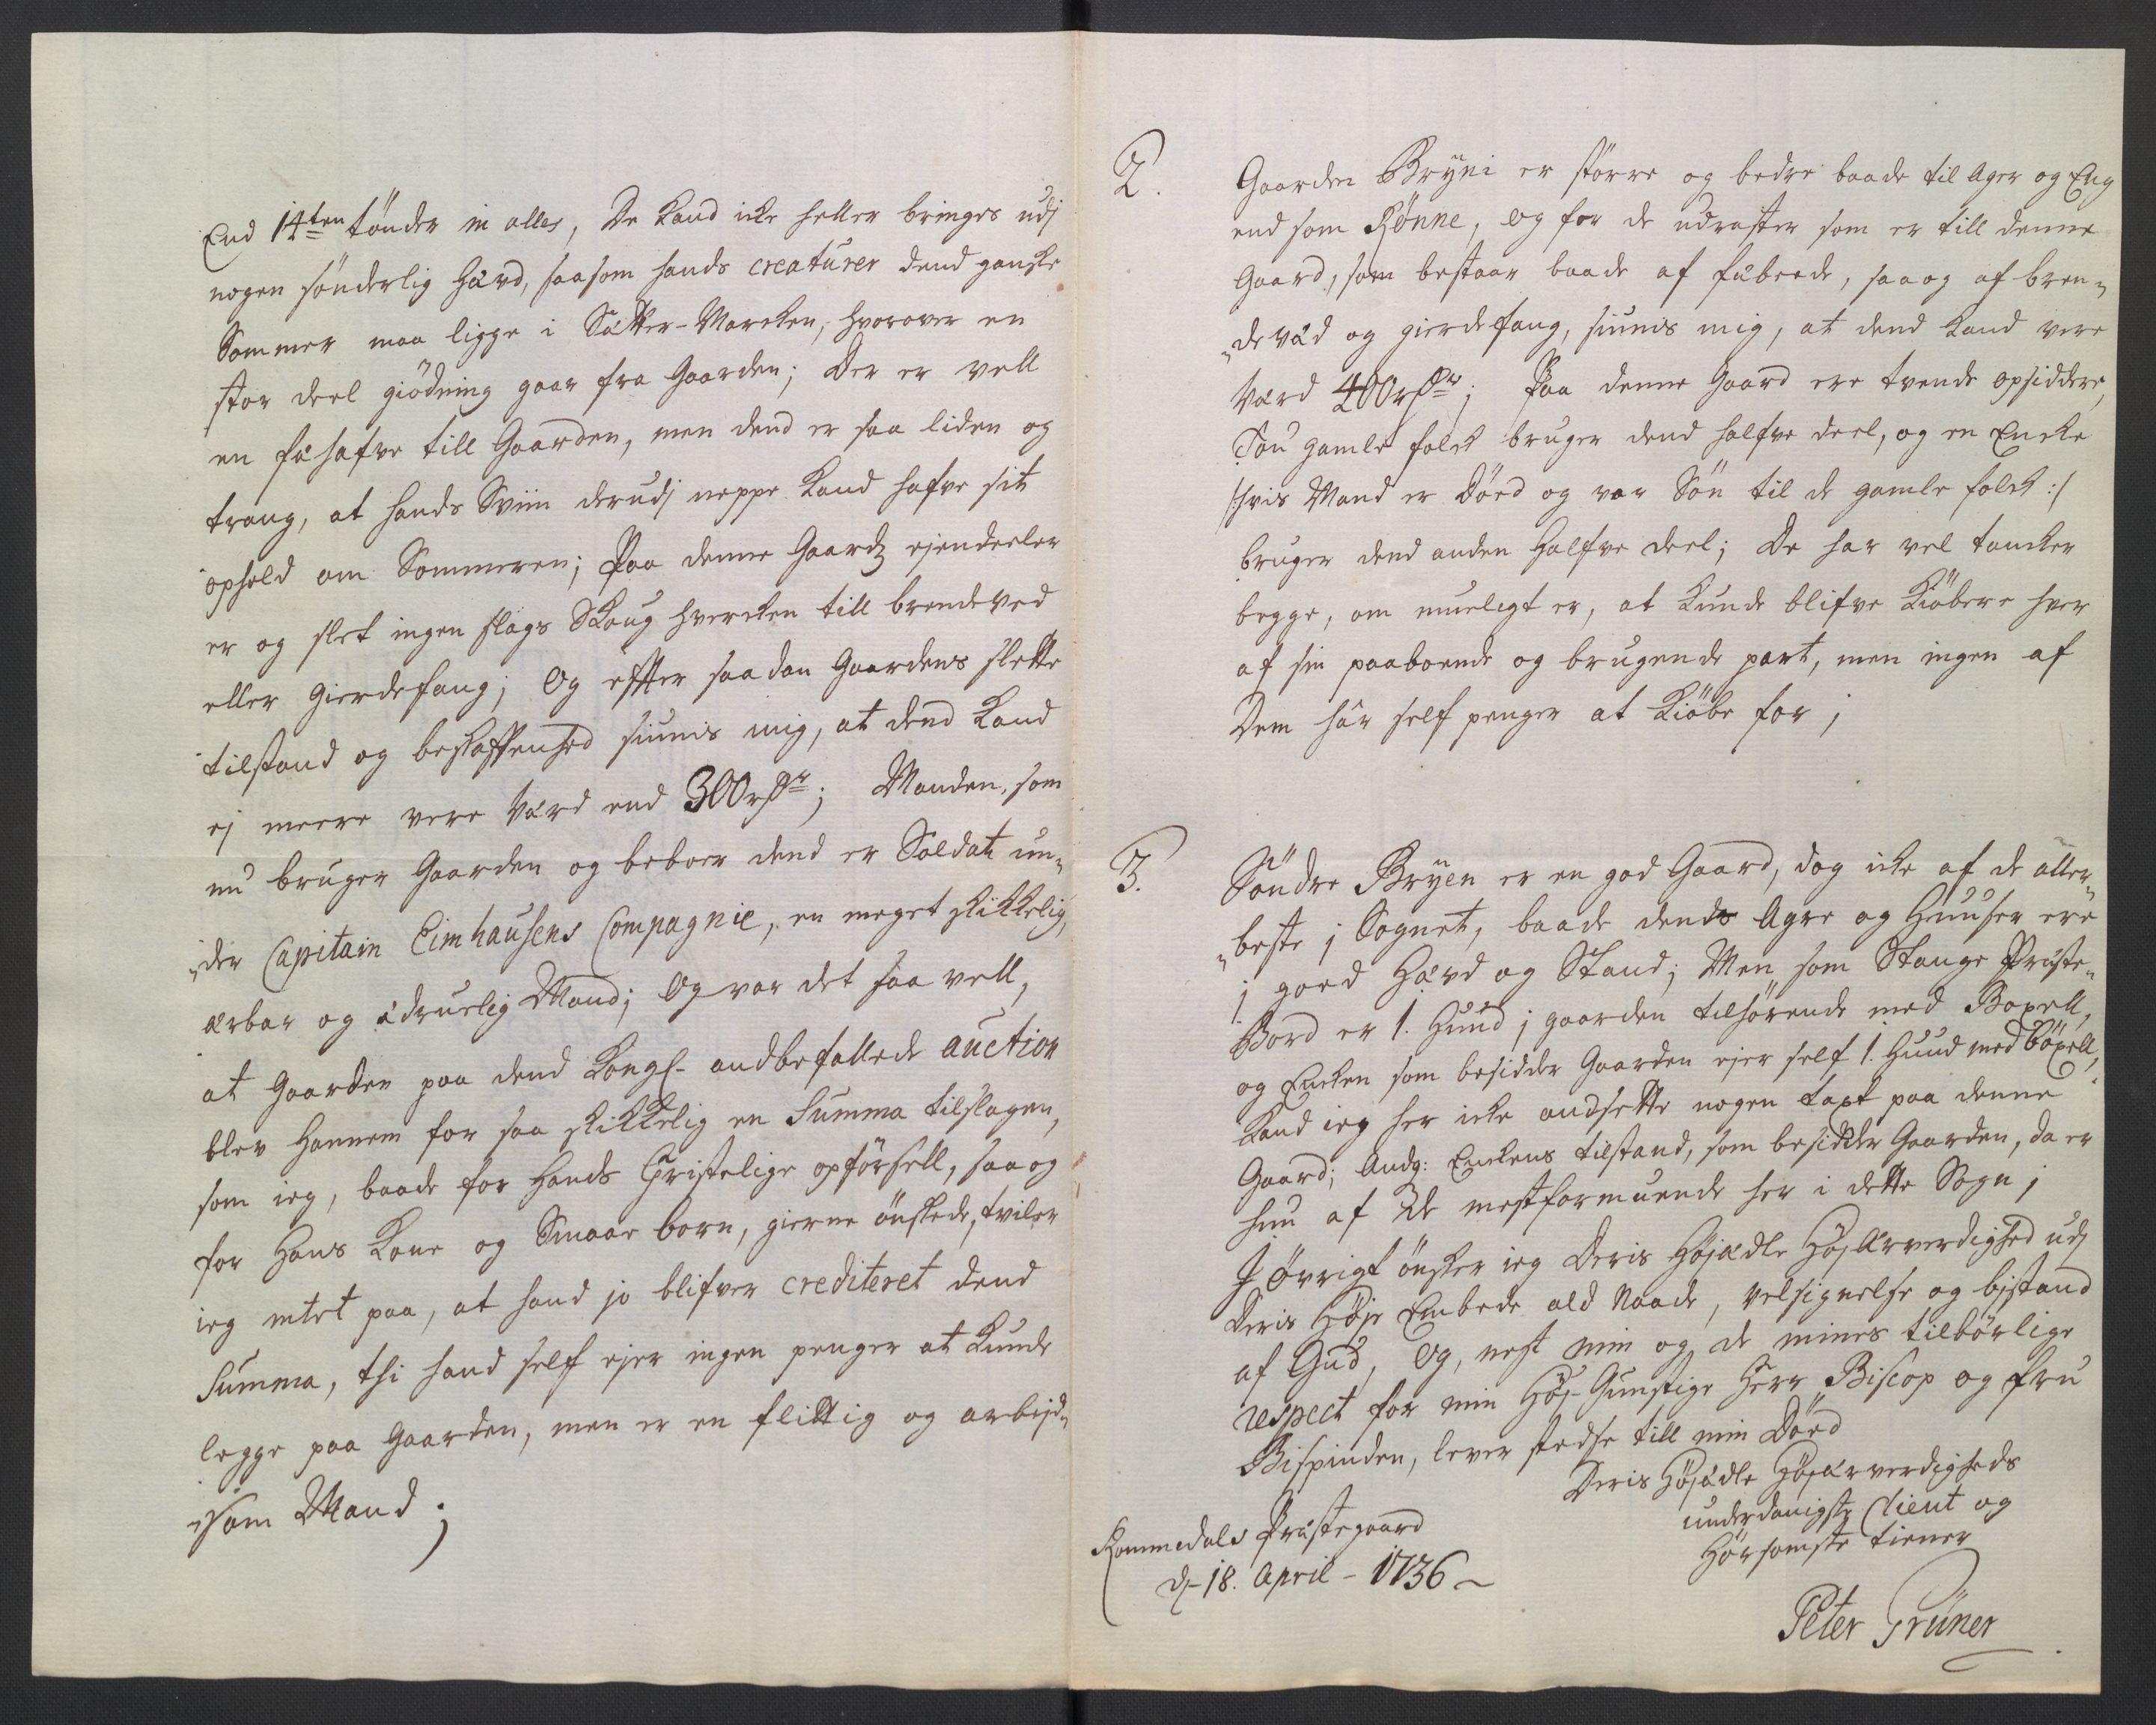 End 14ten tönder in alles, De kand icke heller bringes udj
nogen sönderlig Hævd, saasom hands creaturer dend ganske
Sommer maa ligge i Sætter-Marcken, hvorover en
stor deel giödning gaar fra Gaarden; Der er vell
en fæhafve till Gaarden, men dend er saa liden og
trang, at hands Sviin derudj neppe kand hafve sit
ophold om Sommeren; Paa denne Gaards ejendeeler
er og slet ingen slags Skoug hvercken till brendeved
eller gierdefang; Og effter saadan Gaardens slette
tilstand og beskaffenhed siunis mig, at dend kand
ej meere vere værd end 300 rdr; Manden, som
nu bruger Gaarden og beboer dend er Soldat un„
„der Capitain Eimhausens Compagnie, en meget skikkelig,
ærbar og ædruelig Mand; Og var det saa vell,
at Gaarden paa dend Kongl- andbefallede auction
blev Hannem for saa skikkelig en Summa tilslagen,
som ieg, baade for Hands Christelige opförsell, saa og
for Hans Kone og Smaae born, gierne önskede, tviler
ieg intet paa, at hand jo blifver crediteret dend
Summa, thi hand self ejer ingen penger at kunde
legge paa Gaarden, men er en flittig og arbejd„
„som Mand;
2. Gaarden Bryni er större og bedre baade til Ager og Eng
end som Rönne, og for de udraster som er till denne
Gaard, som bestaar baade af fæbeede, saa og af bren„
„deved og gierdefang, siunis mig, at dend kand vere
værd 400 rdr; Paa denne Gaard ere tvende opsiddere,
Tou gamle folck bruger dend halfve deel, og en Encke
/:hvis Mand er Död og var Sön til de gamle folck:/
bruger dend anden Halfve deel; De har vel tancker
begge, om mueligt er, at kunde blifve kiöbere hver
af sin paaboende og brugende part, men ingen af
Dem har self penger at kiöbe for;
3. Söndre Bryen er en god Gaard, dog icke af de aller„
„beste j Sognet, baade dends Agre og Huuser ere
j goed Hævd og Stand; Men som Stange Præste„
Bord er 1. Huud j gaarden tilhörende med Böxell,
og Encken som besidder Gaarden ejer self 1. Huud med böxell,
kand ieg her icke andsette nogen taxt paa denne
Gaard; Andg: Enckens tilstand, som besidder Gaarden, da er
hun af de mestformuende her i dette Sogn;
I övrigt önsker ieg Deris Höjædle HöjÆrverdighed udj
Deris Höje Embede ald Naade, velsignelse og bistand
af Gud, Og, nest min og de mines tilbörlige
respect for min Höj-Gunstige Herr Biscop og fru
Bispinden, lever stedse till min Död
Deris Höjædle Höjærverdigheds
underdanigste Client og
Hörsomste tiener
Rommedals Præstegaard
d- 18. April - 1736
Peter Grüner